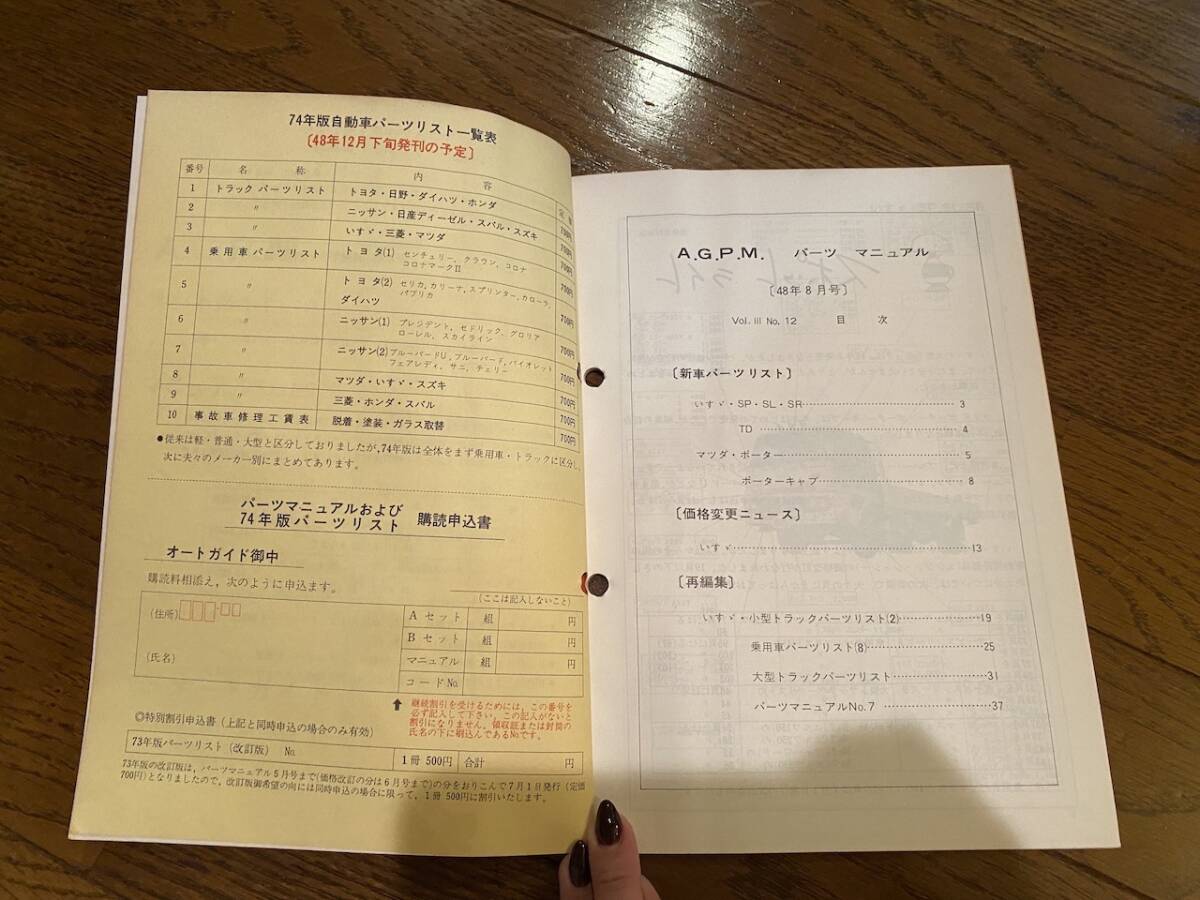 74年版自動車パーツリスト一覧表
〔48年12月下旬発刊の予定〕
番号 名 称 内 容 定価
1 トラック パーツリスト トヨタ・日野・ダイハツ・ホンダ 700円
2 〃 ニッサン・日産ディーゼル・スバル・スズキ 700円
3 〃 いすゞ・三菱・マツダ 700円
4 乗用車パーツリスト トヨタ(1) センチュリー, クラウン, コロナ
コロナマークII 700円
5 〃 トヨタ(2) セリカ, カリーナ, スプリンター, カローラ,
パブリカ
ダイハツ 700円
6 〃 ニッサン(1) プレジデント, セドリック, グロリア
ローレル, スカイライン 700円
7 〃 ニッサン(2) ブルーバードU, ブルーバード, バイオレット
フェアレディ, サニ, チェリー 700円
8 〃 マツダ・いすゞ・スズキ 700円
9 〃 三菱・ホンダ・スバル 700円
10 事故車修理工賃表 脱着・塗装・ガラス取替 700円
●従来は軽・普通・大型と区分しておりましたが, 74年版は全体をまず乗用車・トラックに区分し,
次に夫々のメーカー別にまとめてあります。
パーツマニュアルおよび
74年版パーツリスト 購読申込書
オートガイド御中
購読料相添え, 次のように申込ます。
(ここは記入しないこと)
(住所)
(氏名)
Aセット 組 円
Bセット 組 円
マニュアル 組 円
コードNo.
継続割引を受けるためには, この番号を
必ず記入して下さい。この記入がないと
割引になりません。領収証または封筒の
氏名の下に刷込んであるNo.です。
◎特別割引申込書 (上記と同時申込の場合のみ有効)
73年版パーツリスト (改訂版) No. 1冊 500円 合計 円
73年版の改訂版は, パーツマニュアル5月号まで(価格改訂の分は6月号まで)の分をおりこんで7月1日発行 (定価
700円)となりましたので, 改訂版御希望の向には同時申込の場合に限って, 1冊500円に割引いたします。
A.G.P.M. パーツ マニュアル
〔48年8月号〕
Vol. iii No. 12 目 次
〔新車パーツリスト〕
いすゞ・SP・SL・SR 3
TD 4
マツダ・ポーター 5
ポーターキャブ 8
〔価格変更ニュース〕
いすゞ 13
〔再編集〕
いすゞ・小型トラックパーツリスト(2) 19
乗用車パーツリスト(8) 25
大型トラックパーツリスト 31
パーツマニュアルNo.7 37